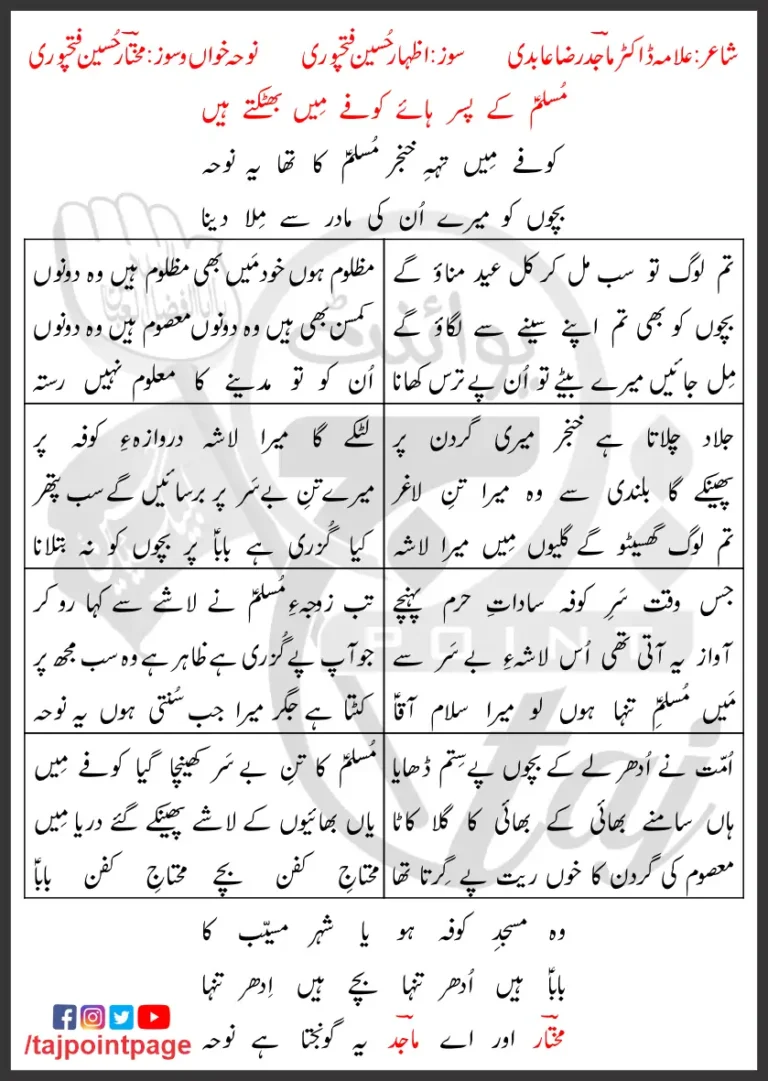 شاعر: علامہ ڈاکٹر ماجد رضا عابدی سوز: اظہار حُسین فتحپوری نوحہ خواں و سوز: مختار حُسین فتحپوری
مُسلمؑ کے پسر ہائے کوفے مِیں بھٹکتے ہیں
کوفے مِیں تہہِ خنجر مُسلمؑ کا تھا یہ نوحہ
بچوں کو میرے اُن کی مادر سے مِلا دینا
تم لوگ تو سب مل کر کل عید مناؤ گے
بچوں کو بھی تم اپنے سینے سے لگاؤ گے
مِل جائیں میرے بیٹے تو اُن پے ترس کھانا
مظلوم ہوں خود مَیں بھی مظلوم ہیں وہ دونوں
کمسن بھی ہیں وہ دونوں معصوم ہیں وہ دونوں
اُن کو تو مدینے کا معلوم نہیں رستہ
جلاد چلاتا ہے خنجر میری گردن پر
پھینکے گا بلندی سے وہ میرا تنِ لاغر
تم لوگ گھسیٹو گے گلیوں مِیں میرا لاشہ
لٹکے گا میرا لاشہ دروازہءِ کوفہ پر
میرے تنِ بے سَر پر برسائیں گے سب پتھر
کیا گُزری ہے باباؑ پر بچوں کو نہ بتلانا
جس وقت سَرِ کوفہ ساداتِ حرم پہنچے
آواز یہ آتی تھی اُس لاشہءِ بے سَر سے
مَیں مُسلمِؑ تنہا ہوں لو میرا سلام آقاؑ
تب زوجہءِ مُسلمؑ نے لاشے سے کہا رو کر
جو آپ پے گُزری ہے ظاہر ہے وہ سب مجھ پر
کٹتا ہے جگر میرا جب سُنتی ہوں یہ نوحہ
اُمّت نے اُدھر لے کے بچوں پے سِتم ڈھایا
ہاں سامنے بھائی کے بھائی کا گلا کاٹا
معصوم کی گردن کا خوں ریت پے گِرتا تھا
مُسلمؑ کا تنِ بے سَر کھینچا گیا کوفے مِیں
یاں بھائیوں کے لاشے پھینکے گئے دریا مِیں
محتاجِ کفن بچے محتاجِ کفن باباؑ
وہ مسجدِ کوفہ ہو یا شہر مسیّب کا
باباؑ ہیں اُدھر تنہا بچے ہیں اِدھر تنہا
مختار اور اے ماجد یہ گونجتا ہے نوحہ
/tajpointpage
پوائنٹ
POINT
taj